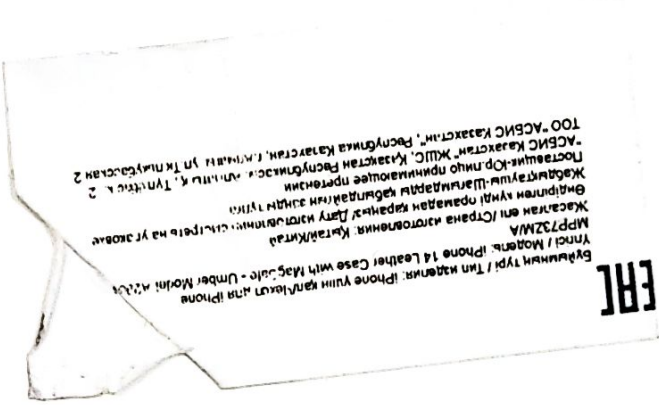 EAC
Бұйымның түрі / Тип изделия: iPhone үшін қап/Чехол для iPhone
Үлгісі / Модель: iPhone 14 Leather Case with MagSafe - Umber Model
MPP73ZM/A
Жасалған елі /Страна изготовления: Қытай/Китай
Өндірілген күнді орамадан қараңыз/ Дату изготовления смотреть на
Жабдықтаушы-Шағымдарды қабылдайтын заңды тұлға
Поставщик-Юр.лицо принимающее претензии
"АСБИС Казахстан" ЖШС, Қазақстан Республикасы, 2
ТОО "АСБИС Казахстан", Республика Казахстан, ул 2